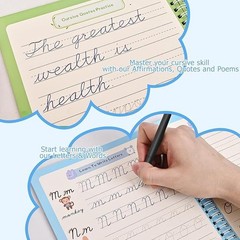 Cursive Quotes Practice
The greatest
wealth is
health
Master your cursive skill
with our Affirmations, Quotes and Poems
Start learning with
our Letters & Words
Learn To Write Letters
M m
monkey